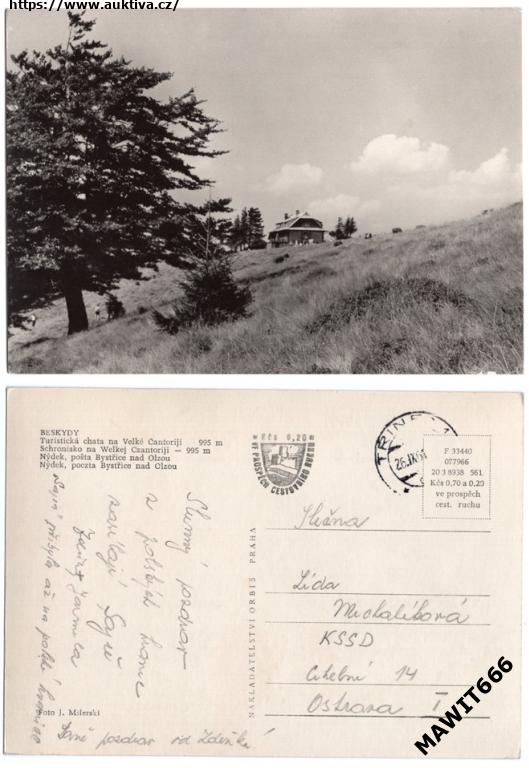 https://www.auktiva.cz/
BESKYDY
Turistická chata na Velké Čantoriji 995 m
Schronisko na Wełkej Czantoriji — 995 m
Nýdek, pošta Bystřice nad Olzou
Nýdek, poczta Bystřice nad Olzou
Kčs 0,20
VE PROSPĚCH CESTOVNÍHO RUCHU
TŘINEC 1
26.IX.61
F 33440
077966
20 3 8938 561.
Kčs 0,70 a 0,20
ve prospěch
cest. ruchu
Slunný pozdrav
z polských hranic
zasílají
Jarmila
přišla až na polské
pozdrav od Zdeňka
Foto J. Milerski
NAKLADATELSTVÍ ORBIS PRAHA
Slečna
Lída
Michalíková
KSSD
Cihelní 14
Ostrava I
MAWIT666